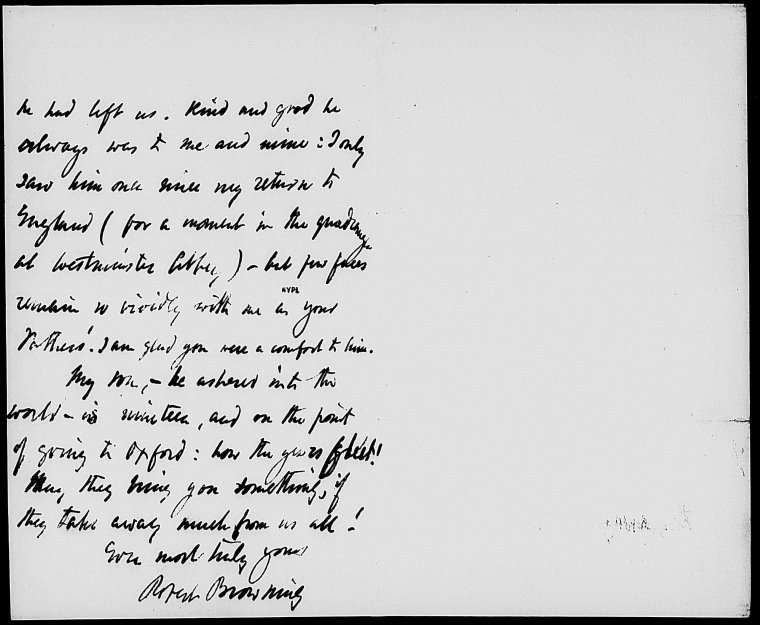 he had left us. Kind and good he
always was to me and mine: I only
saw him once since my return to
England (for a moment in the quadrangle
at Westminster Abbey) – but few faces
NYPL
remain so vividly with me as your
Father's. I am glad you were a comfort to him.
My son, – he ushered into the
world – is nineteen, and on the point
of going to Oxford: how the years fleet!
May they bring you something, if
they take away much from us all!
Ever most truly yours
Robert Browning